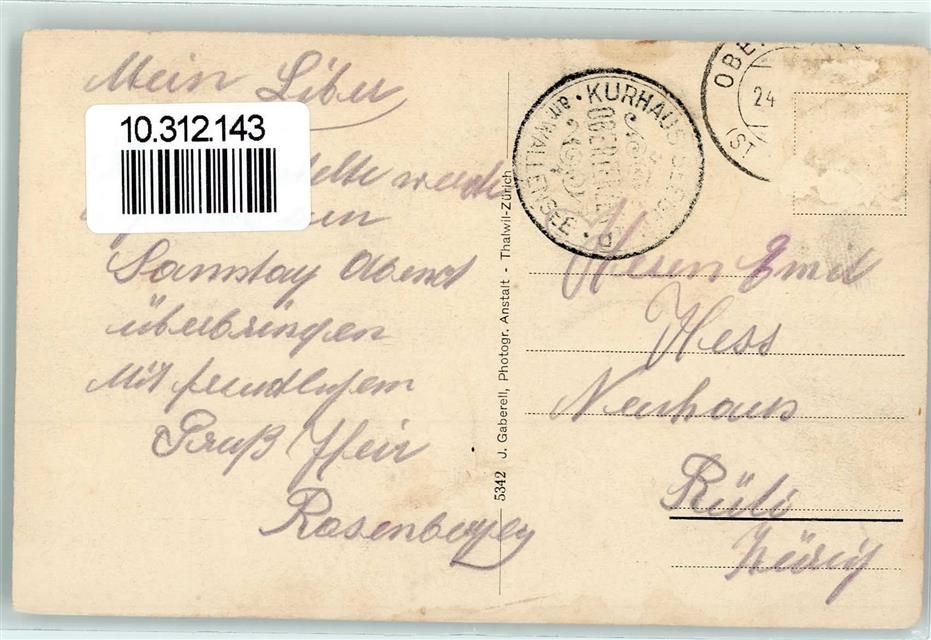 Mein Liber
10.312.143
Samstag Abend
überbringen
Mit freundlichem
Gruß Heir
Rosenberger
5342 J. Gaberell, Photogr. Anstalt - Thalwil-Zürich
KURHAUS
OBERTERZEN
a. WALLENSEE
OBE
24
(ST
Herrn Emil
Hess
Neuhaus
Rüti
Zürich